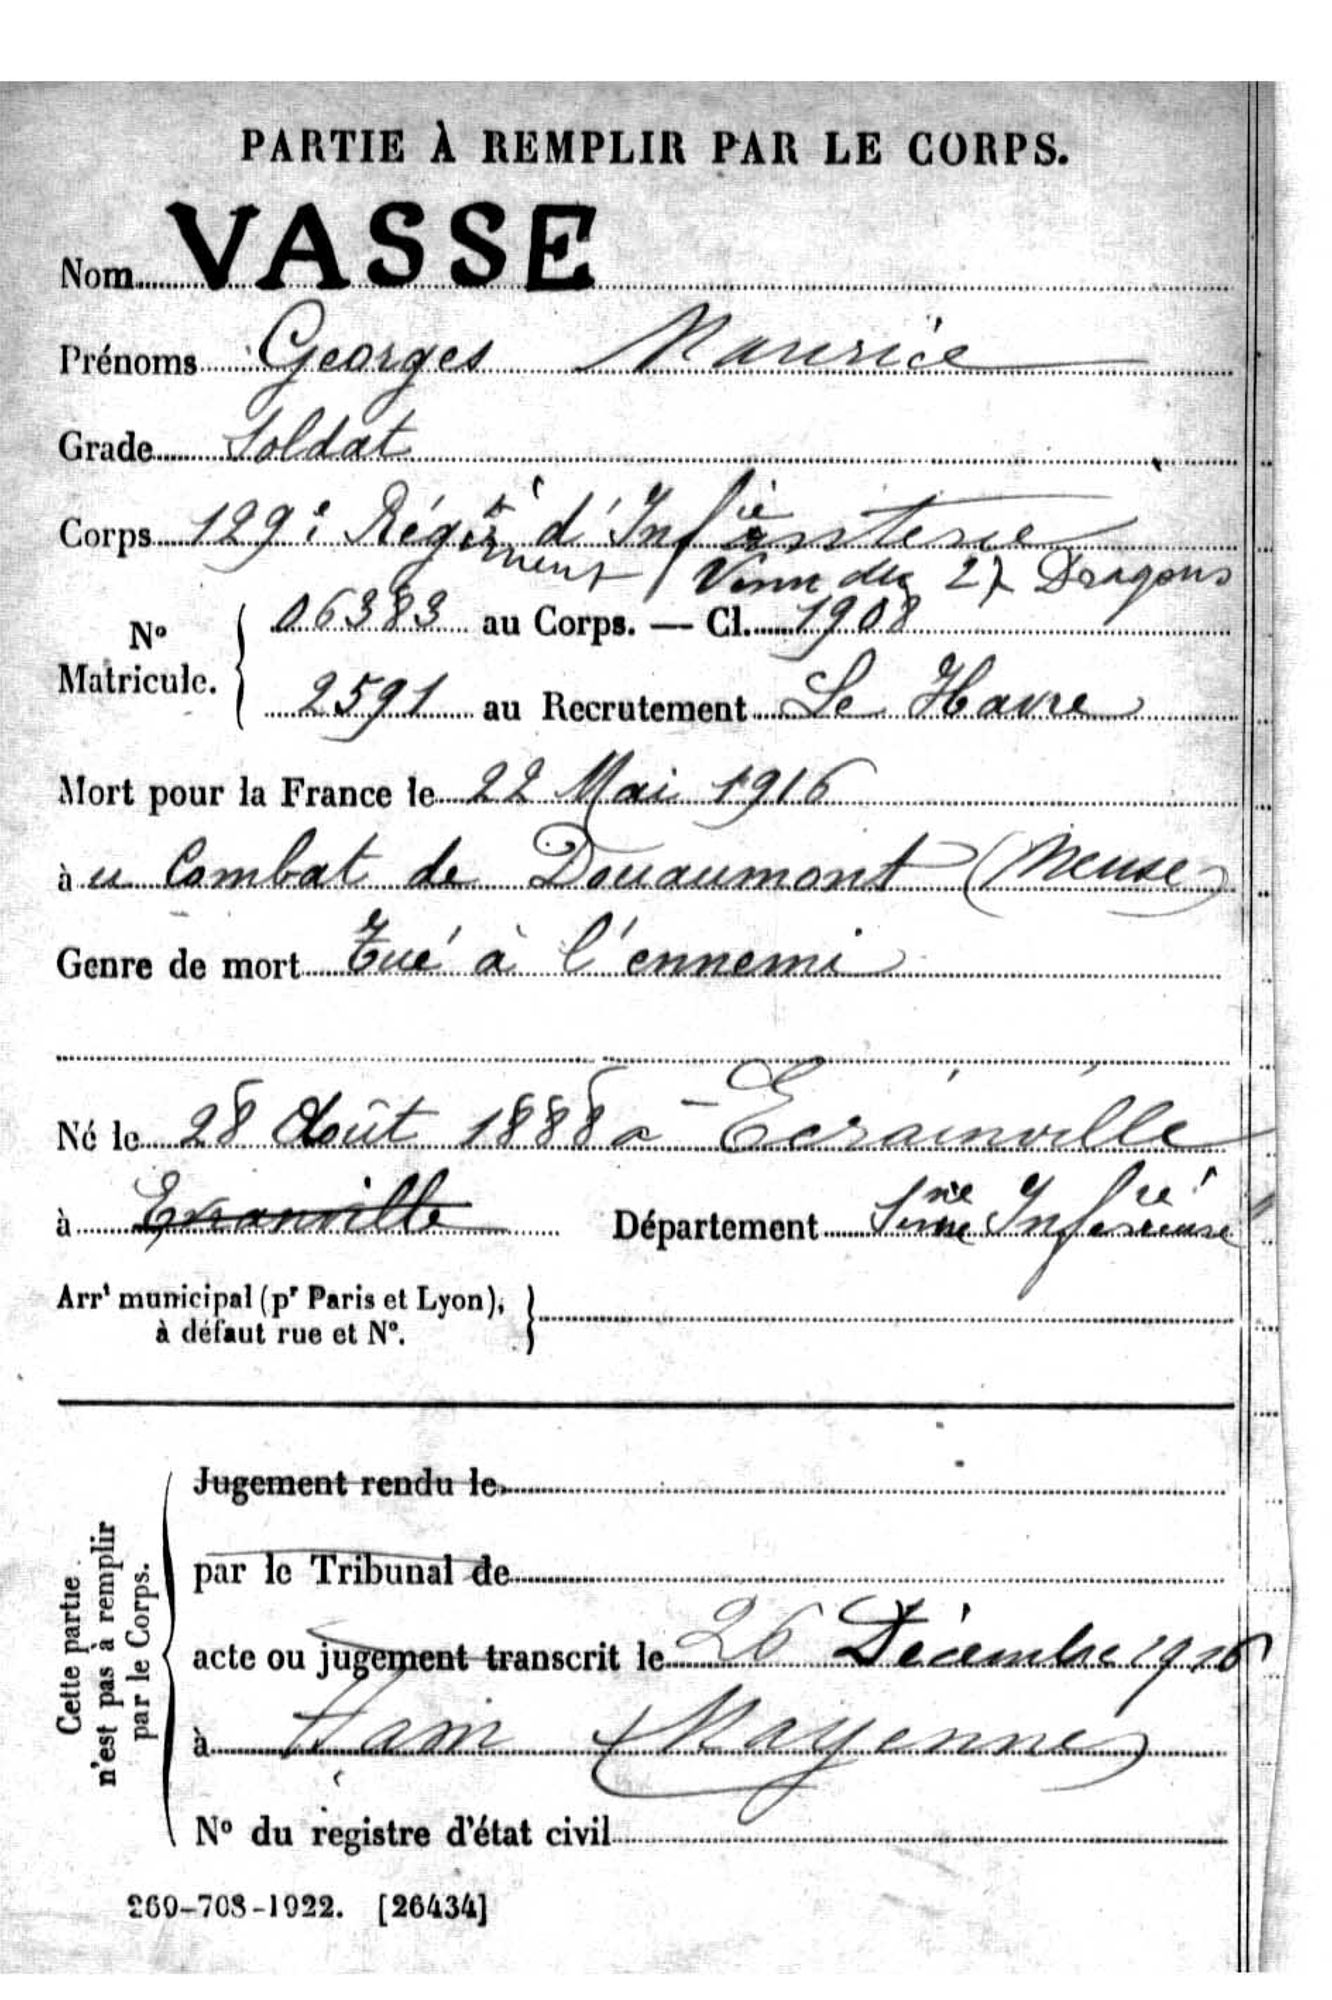 PARTIE À REMPLIR PAR LE CORPS.
Nom VASSE
Prénoms Georges Maurice
Grade Soldat
Corps 129e Régiment d'Infanterie
Venu du 27 Dragons
No Matricule. { 06383 au Corps. — Cl. 1908
2591 au Recrutement Le Havre
Mort pour la France le 22 Mai 1916
à u Combat de Douaumont (Meuse)
Genre de mort Tué à l'ennemi
Né le 28 Août 1888 à Ecrainville
à Département Seine Inférieure
Arrt municipal (pr Paris et Lyon), à défaut rue et No.
Cette partie n'est pas à remplir par le Corps.
Jugement rendu le
par le Tribunal de
acte ou jugement transcrit le 26 Décembre 1916
à Ham (Mayenne)
No du registre d'état civil
269-708-1922. [26434]